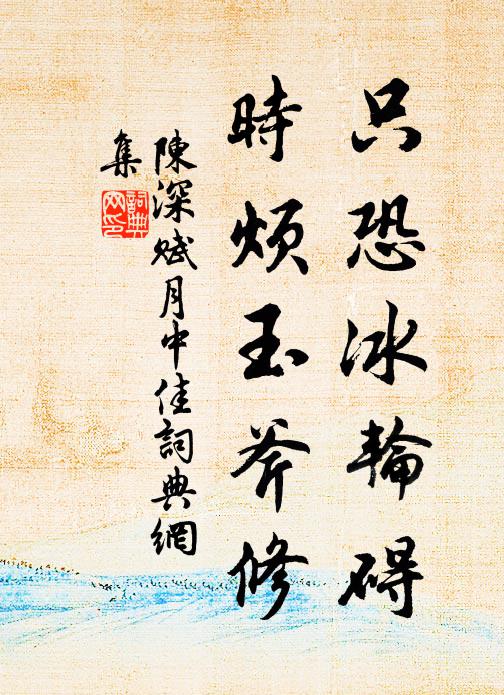 只恐冰輪碍
時煩玉斧修
陳深賦月中佳詞典網
集
詞典网印